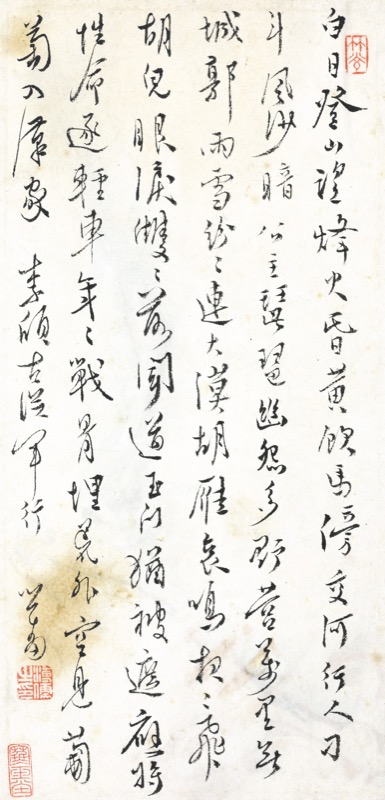 白日登山望烽火昏黃飲馬傍交河行人刁
斗風沙暗公主琵琶幽怨多野營萬里無
城郭雨雪紛〻連大漠胡雁哀鳴夜〻飛
胡兒眼淚雙〻落聞道玉門猶被遮應將
性命逐輕車年〻戰骨埋荒外空見葡
萄入漢家 李頎古從軍行 心畬